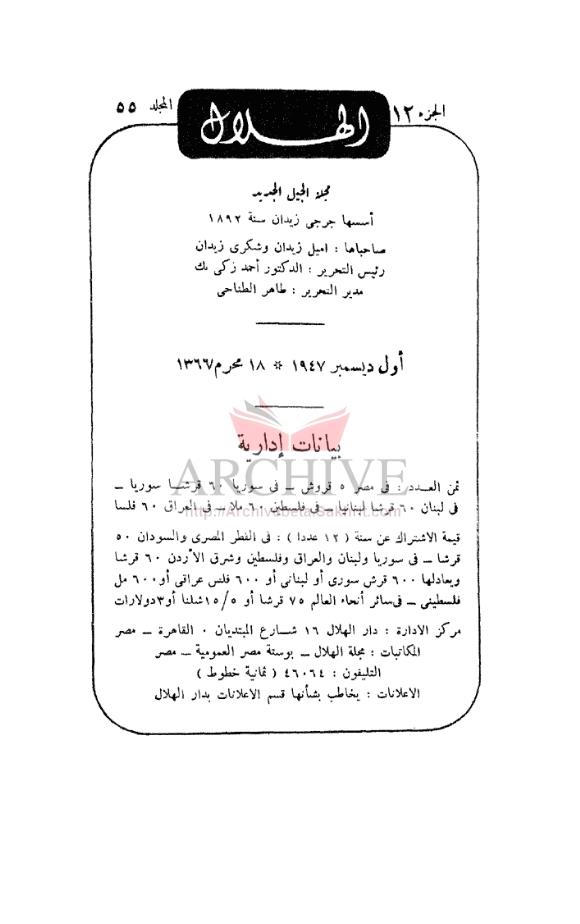 الجزء ١٢
الهلال
المجلد ٥٥
مجلة الجيل الجديد
أسسها جرجي زيدان سنة ١٨٩٢
صاحباها : اميل زيدان وشكرى زيدان
رئيس التحرير : الدكتور أحمد زكى بك
مدير التحرير : طاهر الطناحى
أول ديسمبر ١٩٤٧ * ١٨ محرم ١٣٦٧
بيانات إدارية
ARCHIVE
http://Archivebeta.Sakhrit.com
ثمن العدد : فى مصر ٥ قروش ــ فى سوريا ٦٠ قرشا سوريا ــ
فى لبنان ٦٠ قرشا لبنانيا ــ فى فلسطين ٦٠ ملا ــ فى العراق ٦٠ فلسا
قيمة الاشتراك عن سنة ( ١٢ عددا ) : فى القطر المصرى والسودان ٥٠
قرشا ــ فى سوريا ولبنان والعراق وفلسطين وشرق الأردن ٦٠ قرشا
ويعادلها ٦٠٠ قرش سورى أو لبنانى أو ٦٠٠ فلس عراقى أو ٦٠٠ مل
فلسطينى ــ فى سائر أنحاء العالم ٧٥ قرشا أو ١٥/٥ شلنا أو ٣ دولارات
مركز الادارة : دار الهلال ١٦ شارع المبتديان ٠ القاهرة ــ مصر
المكاتبات : مجلة الهلال ــ بوستة مصر العمومية ــ مصر
التليفون : ٤٦٠٦٤ ( ثمانية خطوط )
الاعلانات : يخاطب بشأنها قسم الاعلانات بدار الهلال